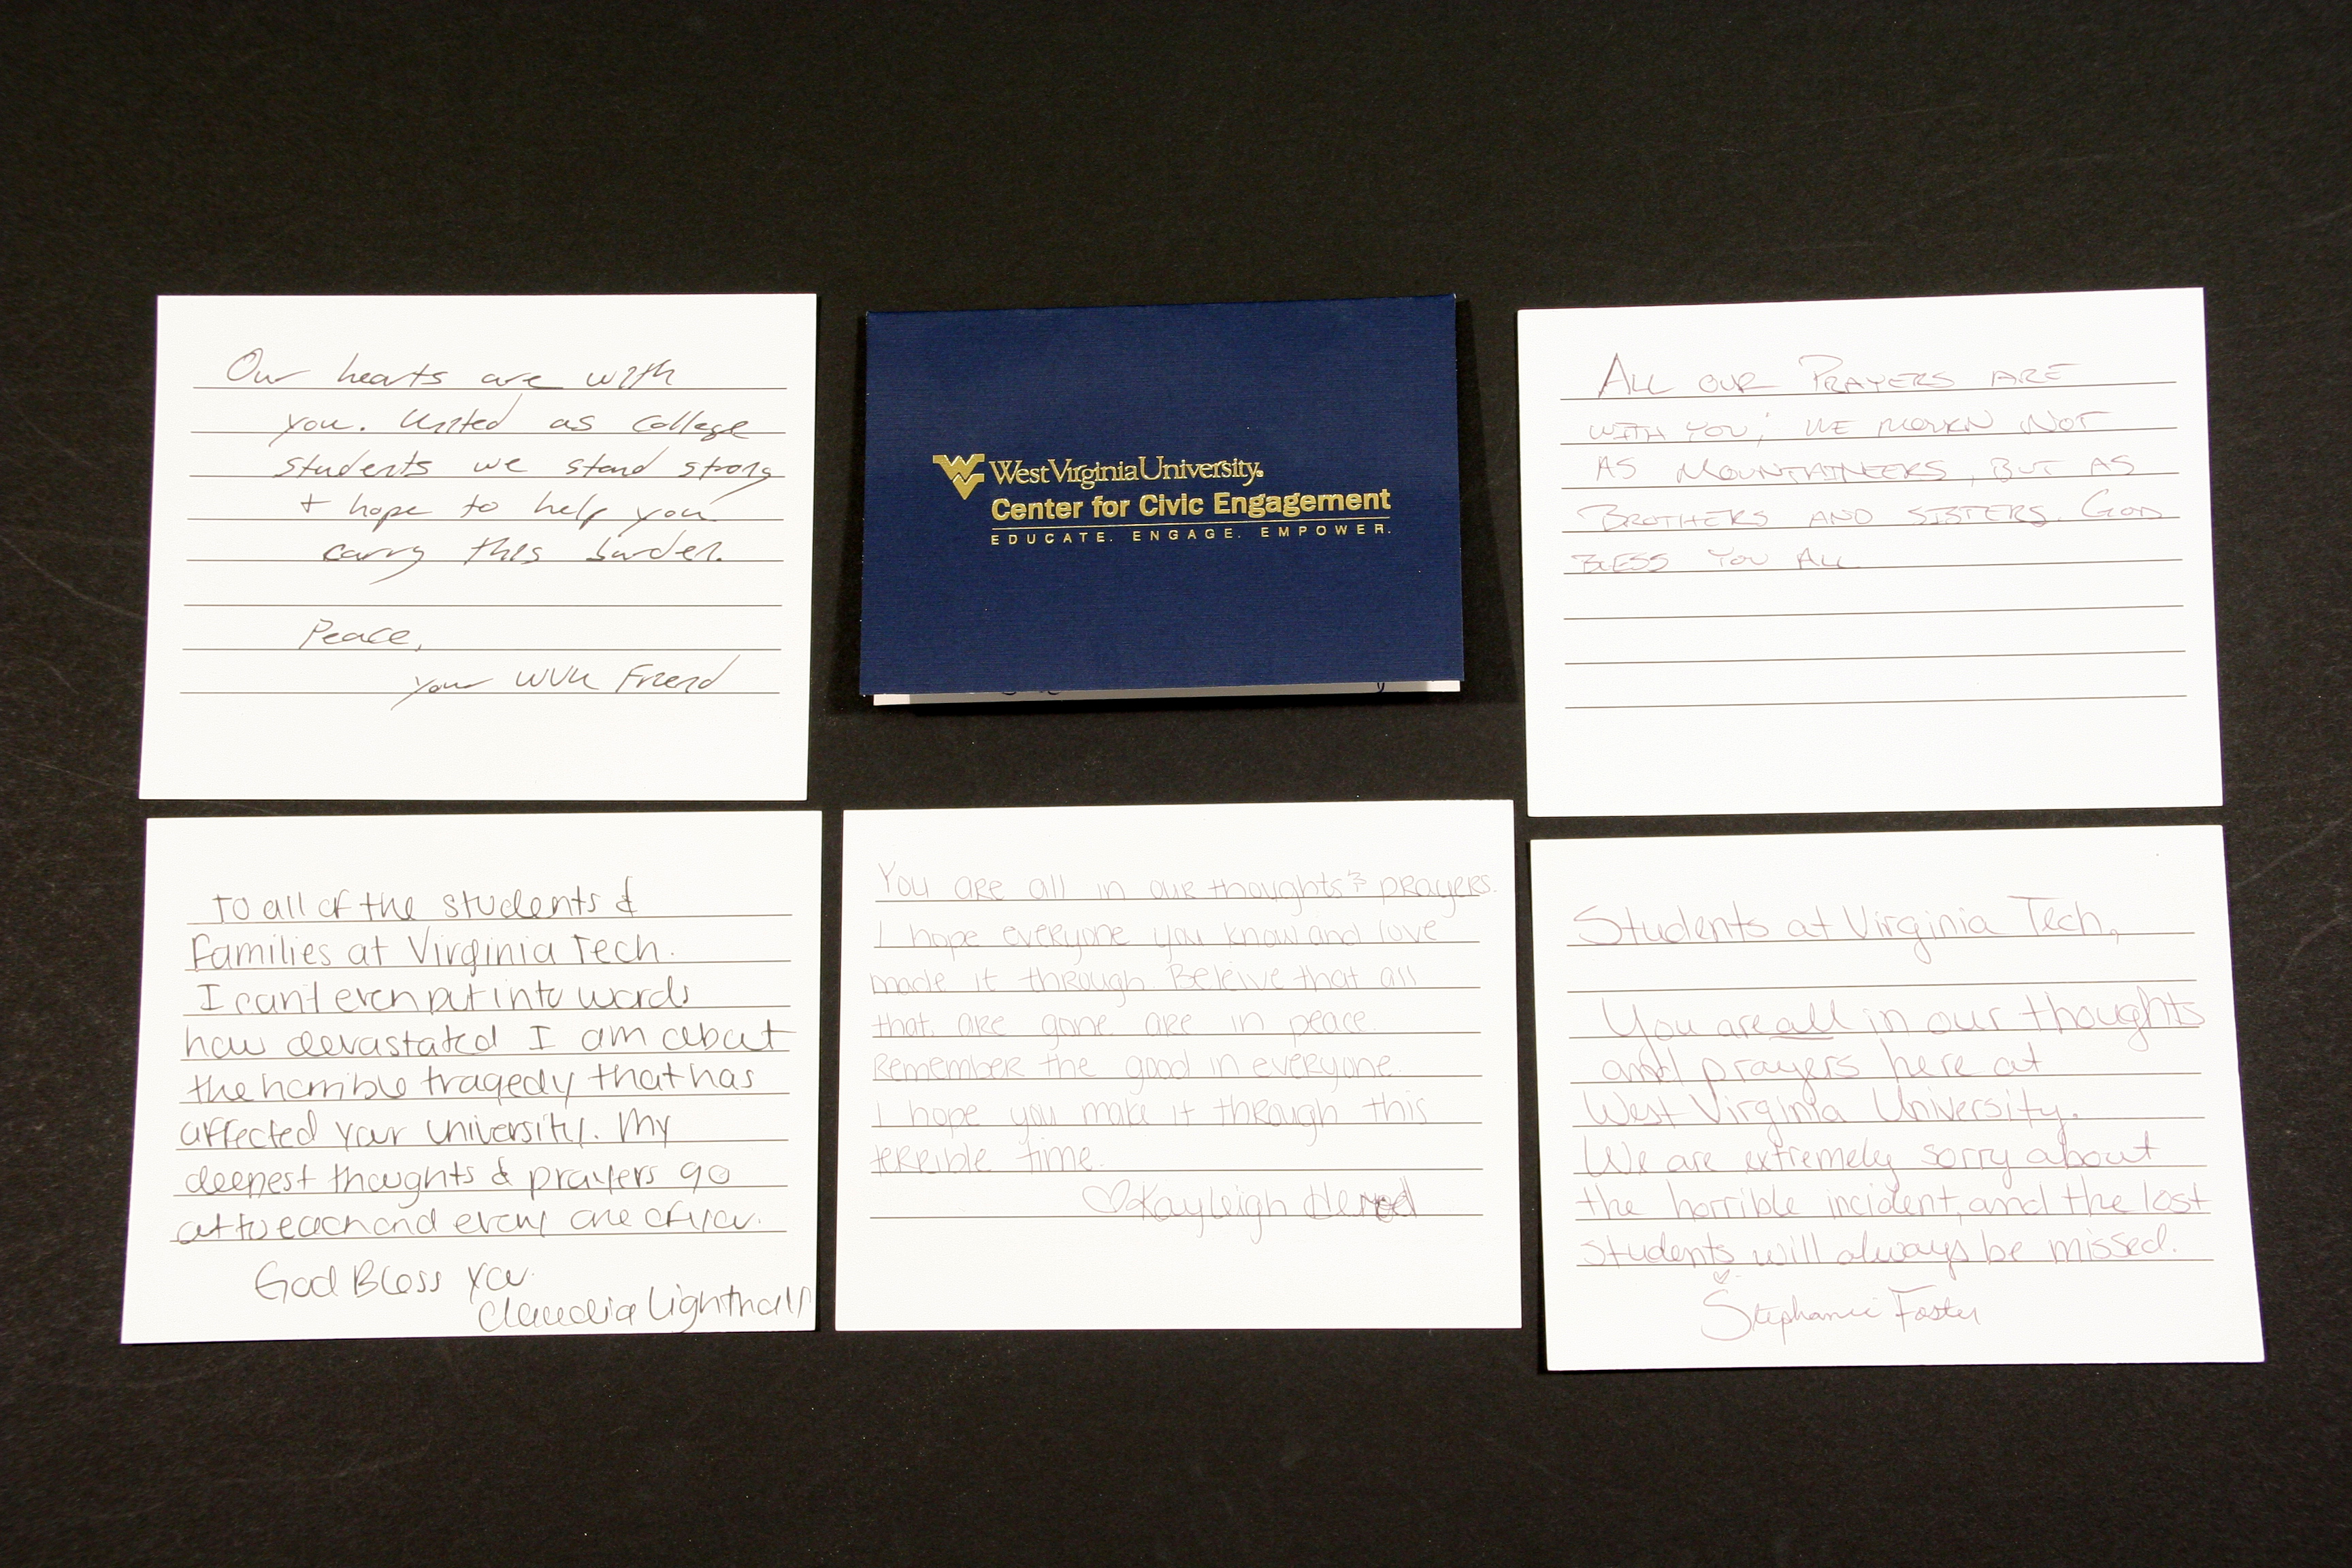 Our hearts are with
you. United as college
students we stand strong
+ hope to help you
carry this burden.
Peace,
your WVU Friend
WV West Virginia University®
Center for Civic Engagement
EDUCATE. ENGAGE. EMPOWER.
ALL OUR PRAYERS ARE
WITH YOU; WE MOURN NOT
AS MOUNTAINEERS, BUT AS
BROTHERS AND SISTERS. GOD
BLESS YOU ALL
To all of the students &
Families at Virginia Tech.
I can't even put into words
how devastated I am about
the horrible tragedy that has
affected your university. My
deepest thoughts & prayers go
out to each and every one of you.
God Bless you.
Claudia Lighthall
You are all in our thoughts & prayers.
I hope everyone you know and love
made it through. Beleive that all
that are gone are in peace.
Remember the good in everyone.
I hope you make it through this
terrible time.
♡ Kayleigh Herod
Students at Virginia Tech,
You are all in our thoughts
and prayers here at
West Virginia University.
We are extremely sorry about
the horrible incident, and the lost
students will always be missed.
♡
Stephanie Foster